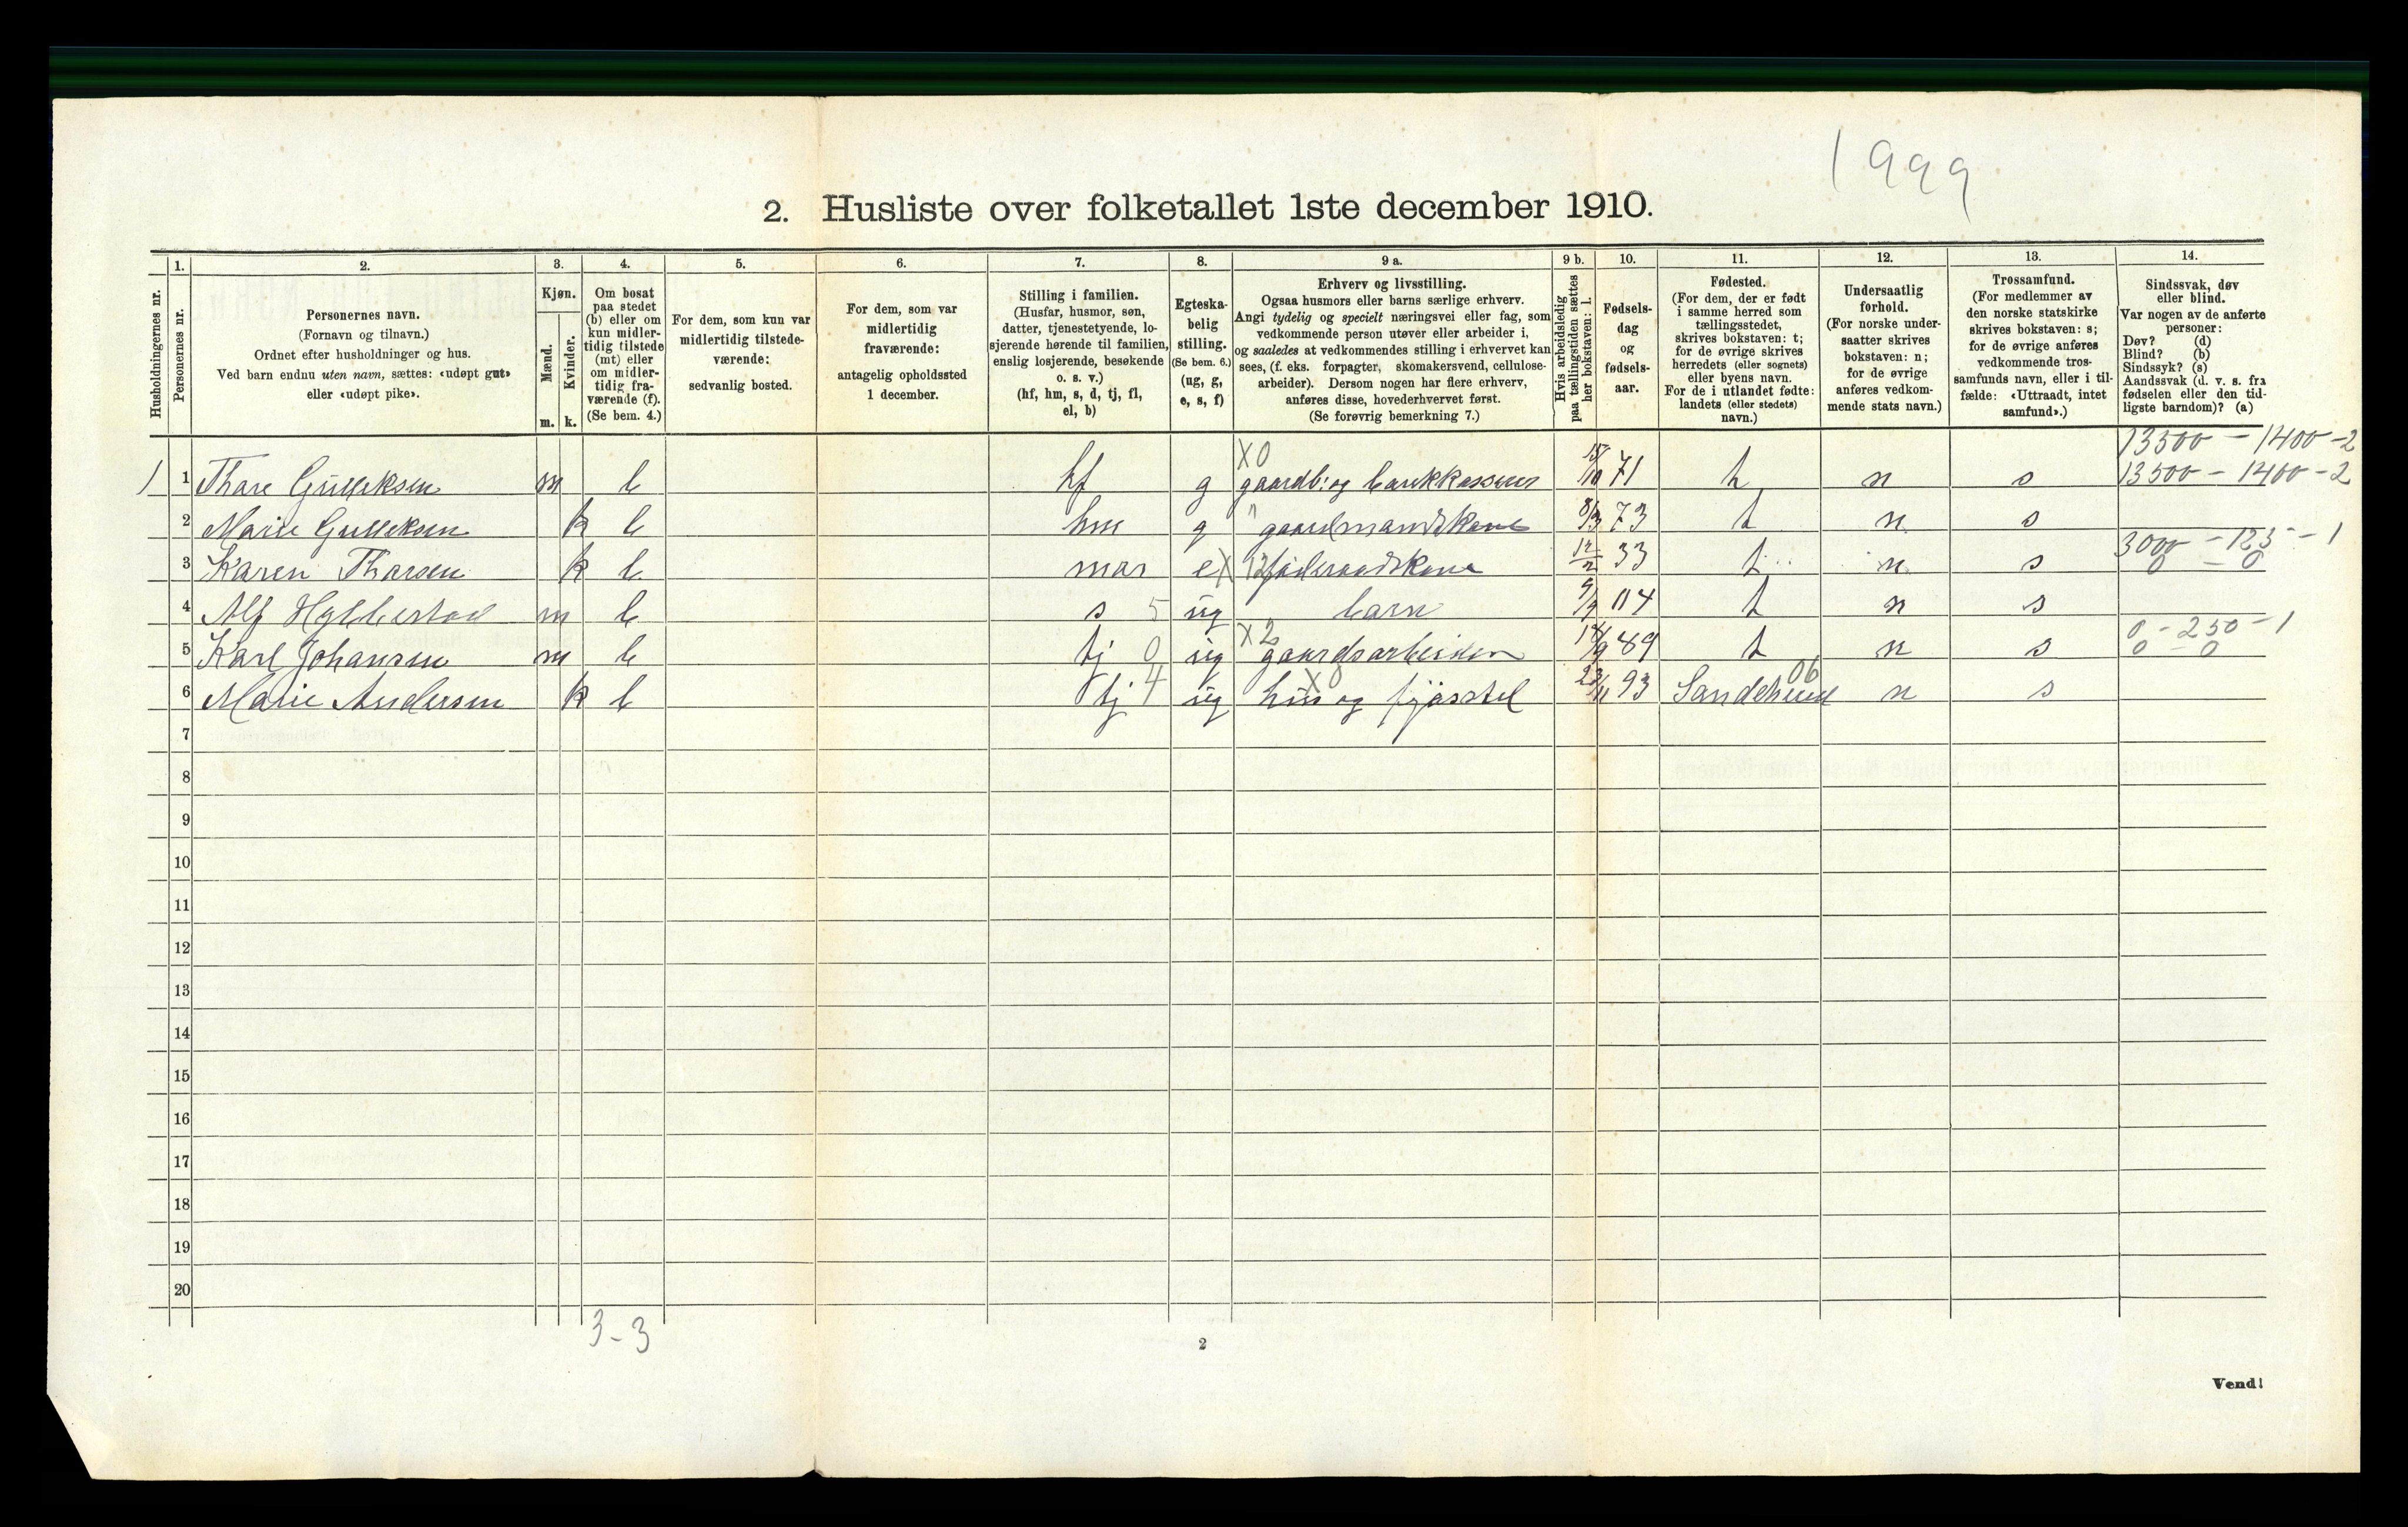 1999
2. Husliste over folketallet 1ste december 1910.
Husholdningernes nr.
1. Personernes nr.
2. Personernes navn.
(Fornavn og tilnavn.)
Ordnet efter husholdninger og hus.
Ved barn endnu uten navn, sættes: «udøpt gut»
eller «udøpt pike».
3. Kjøn.
Mænd. m.
Kvinder. k.
4. Om bosat
paa stedet
(b) eller om
kun midler-
tidig tilstede
(mt) eller
om midler-
tidig fra-
værende (f).
(Se bem. 4.)
5. For dem, som kun var
midlertidig tilstede-
værende:
sedvanlig bosted.
6. For dem, som var
midlertidig
fraværende:
antagelig opholdssted
1 december.
7. Stilling i familien.
(Husfar, husmor, søn,
datter, tjenestetyende, lo-
sjerende hørende til familien,
enslig losjerende, besøkende
o. s. v.)
(hf, hm, s, d, tj, fl,
el, b)
8. Egteska-
belig
stilling.
(Se bem. 6.)
(ug, g,
e, s, f)
9 a. Erhverv og livsstilling.
Ogsaa husmors eller barns særlige erhverv.
Angi tydelig og specielt næringsvei eller fag, som
vedkommende person utøver eller arbeider i,
og saaledes at vedkommendes stilling i erhvervet kan
sees, (f. eks. forpagter, skomakersvend, cellulose-
arbeider). Dersom nogen har flere erhverv,
anføres disse, hovederhvervet først.
(Se forøvrig bemerkning 7.)
9 b. Hvis arbeidsledig
paa tællingstiden sættes
her bokstaven: l.
10. Fødsels-
dag
og
fødsels-
aar.
11. Fødested.
(For dem, der er født
i samme herred som
tællingsstedet,
skrives bokstaven: t;
for de øvrige skrives
herredets (eller sognets)
eller byens navn.
For de i utlandet fødte:
landets (eller stedets)
navn.)
12. Undersaatlig
forhold.
(For norske under-
saatter skrives
bokstaven: n;
for de øvrige
anføres vedkom-
mende stats navn.)
13. Trossamfund.
(For medlemmer av
den norske statskirke
skrives bokstaven: s;
for de øvrige anføres
vedkommende tros-
samfunds navn, eller i til-
fælde: «Uttraadt, intet
samfund».)
14. Sindssvak, døv
eller blind.
Var nogen av de anførte
personer:
Døv? (d)
Blind? (b)
Sindssyk? (s)
Aandssvak (d. v. s. fra
fødselen eller den tid-
ligste barndom)? (a)
13500 - 1400 - 2
X0
1 1 Thore Gulliksen m b hf g gaardb: og bankkasserer 15/10 71 t n s 13500 - 1400 - 2
2 Marie Gulliksen k b hm g " gaardmandskone 8/3 73 t n s
3000 - 125 - 1
3 Karen Thorsen k b mor e X 12 føderaadskone 12/2 33 t n s 0 - 0
4 Alf Hybbestad m b s 5 ug barn 9/9 04 t n s
0 - 250 - 1
5 Karl Johansen m b tj 0 ug X2 gaardsarbeider 14/9 89 t n s 0 - 0
6 Marie Andersen k b tj 4 ug hus og X0 fjøsstel 23/11 93 Sandeherred 06 n s
7
8
9
10
11
12
13
14
15
16
17
18
19
20
3 - 3
2
Vend!